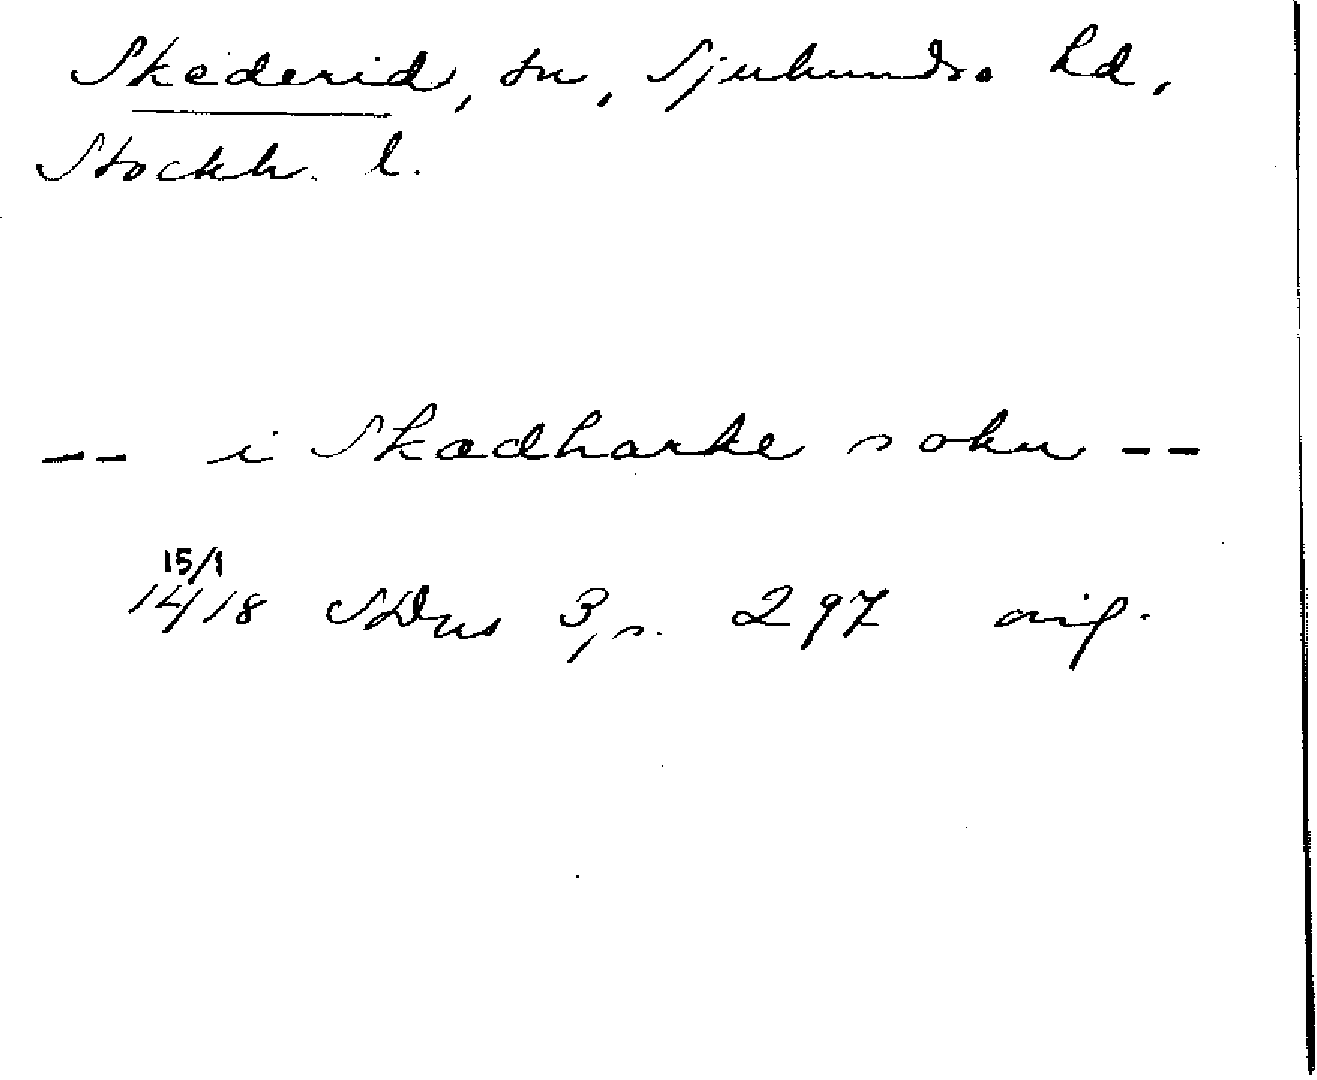 Skederid, sn, Sjuhundra hd,
Stockh. l.
-- i Skædharke sokn --
15/1
1418 SDns 3, s. 297 orig.